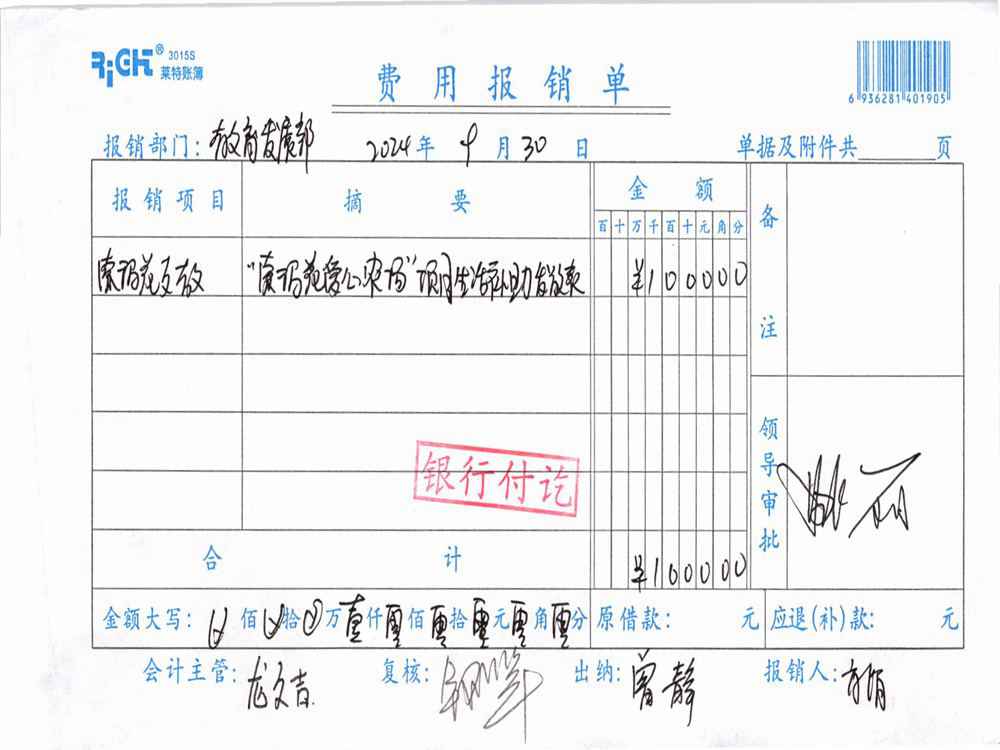 RiCHT® 3015S
莱特账簿
费用报销单
6 936281 401905
报销部门：教育发展部 2024年9月30日 单据及附件共 页
报销项目 摘要 金额 备注
百十万千百十元角分
索玛花支教 "索玛花爱心农场"项目生活补助发放表 ¥100000
银行付讫
领导审批
合计 ¥100000
金额大写： 佰 拾 万壹仟零佰零拾零元零角零分 原借款： 元 应退(补)款： 元
会计主管：龙文吉 复核： 出纳：曾静 报销人：